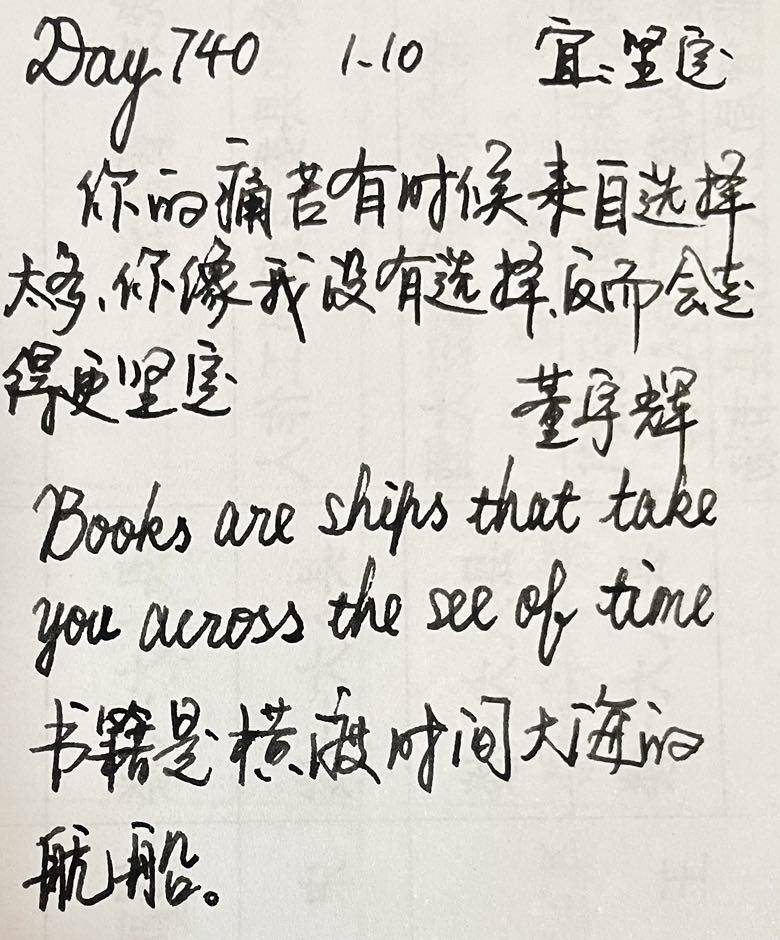 Day 740 1.10 宜:坚定
你的痛苦有时候来自选择
太多、你像我没有选择,反而会走
得更坚定
董宇辉
Books are ships that take
you across the see of time
书籍是横渡时间大海的
航船。